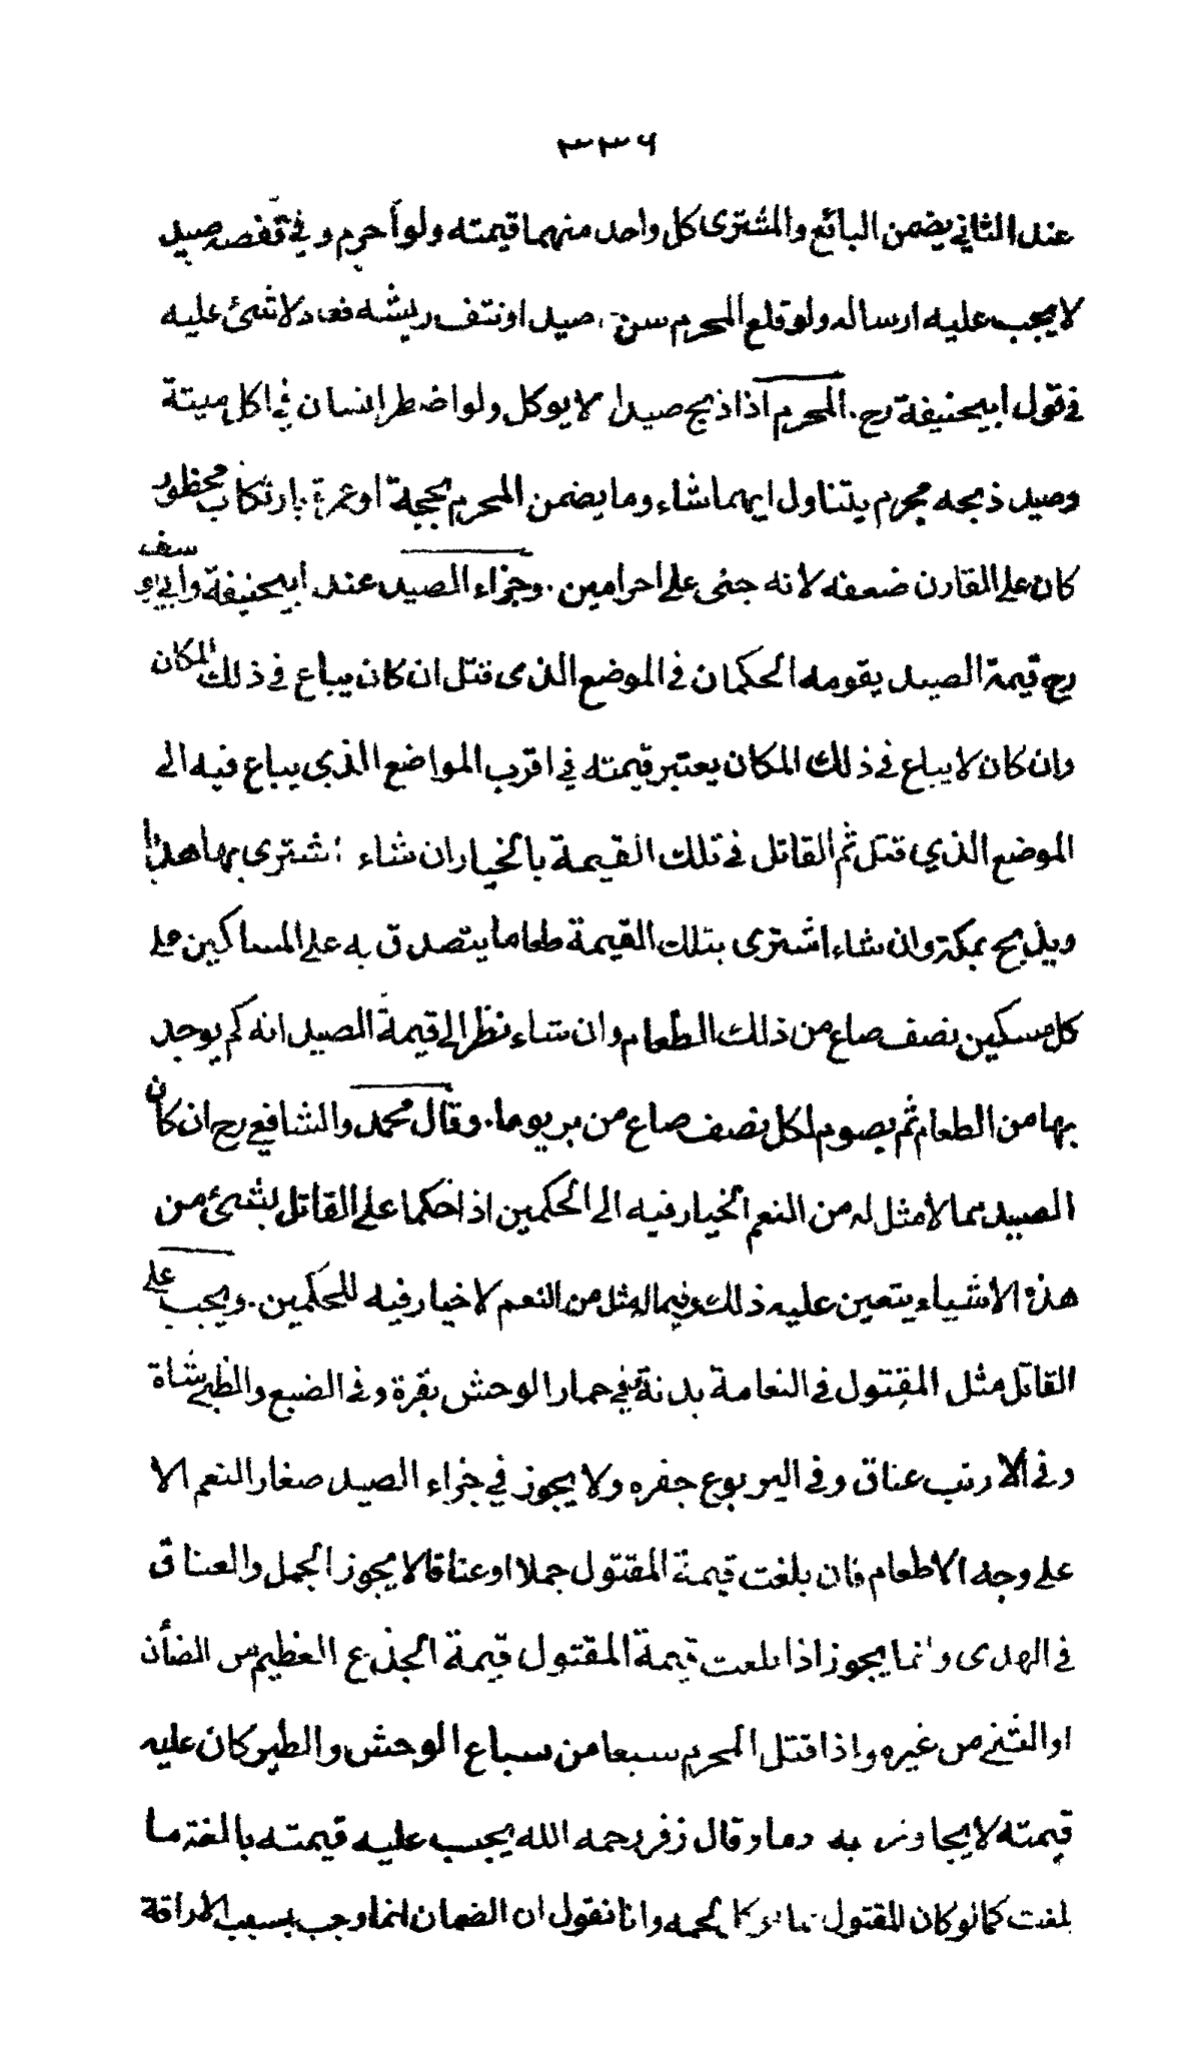 ٣٣٦
عند الثاني يضمن البائع والمشترى كل واحد منهما قيمته ولو أحرم وفي قفصه صيد
لا يجب عليه ارساله ولو قلع المحرم سن صيد او نتف ريشه فعاد لا شئ عليه
في قول ابيحنيفة رح. المحرم اذا ذبح صيدا لا يوكل ولو اضطر انسان في اكل ميتة
وصيد ذبحه محرم يتناول ايهما شاء وما يضمن المحرم بحجة او عمرة بارتكاب محظور
كان على القارن ضعفه لانه جنى على احرامين. وجزاء الصيد عند ابيحنيفة وابي يوسف
رح قيمة الصيد يقومه الحكمان في الموضع الذى قتل ان كان يباع في ذلك المكان
وان كان لا يباع في ذلك المكان يعتبر قيمته في اقرب المواضع الذي يباع فيه الى
الموضع الذي قتل ثم القاتل في تلك القيمة بالخيار ان شاء اشترى بها هديا
ويذبح بمكة وان شاء اشترى بتلك القيمة طعاما يتصدق به على المساكين على
كل مسكين نصف صاع من ذلك الطعام وان شاء نظر الى قيمة الصيد انه كم يوجد
بها من الطعام ثم يصوم لكل نصف صاع من بر يوما. وقال محمد والشافعي رح ان كان
الصيد مما لا مثل له من النعم الخيار فيه الى الحكمين اذا حكما على القاتل بشئ من
هذه الاشياء يتعين عليه ذلك وفيما له مثل من النعم لا خيار فيه للحكمين. ويجب على
القاتل مثل المقتول في النعامة بدنة وفي حمار الوحش بقرة وفي الضبع والظبي شاة
وفي الارنب عناق وفي اليربوع جفره ولا يجوز في جزاء الصيد صغار النعم الا
على وجه الاطعام فان بلغت قيمة المقتول جملا او عناقا لا يجوز الجمل والعناق
في الهدى وانما يجوز اذا بلعت قيمة المقتول قيمة الجذع العظيم من الضأن
او الثني من غيره واذا قتل المحرم سبعا من سباع الوحش والطير كان عليه
قيمته لا يجاوز به دما وقال زفر رحمه الله يجب عليه قيمته بالغة ما
بلغت كما لو كان المقتول لحمه وانا نقول ان الضمان انما وجب بسبب الاراقة